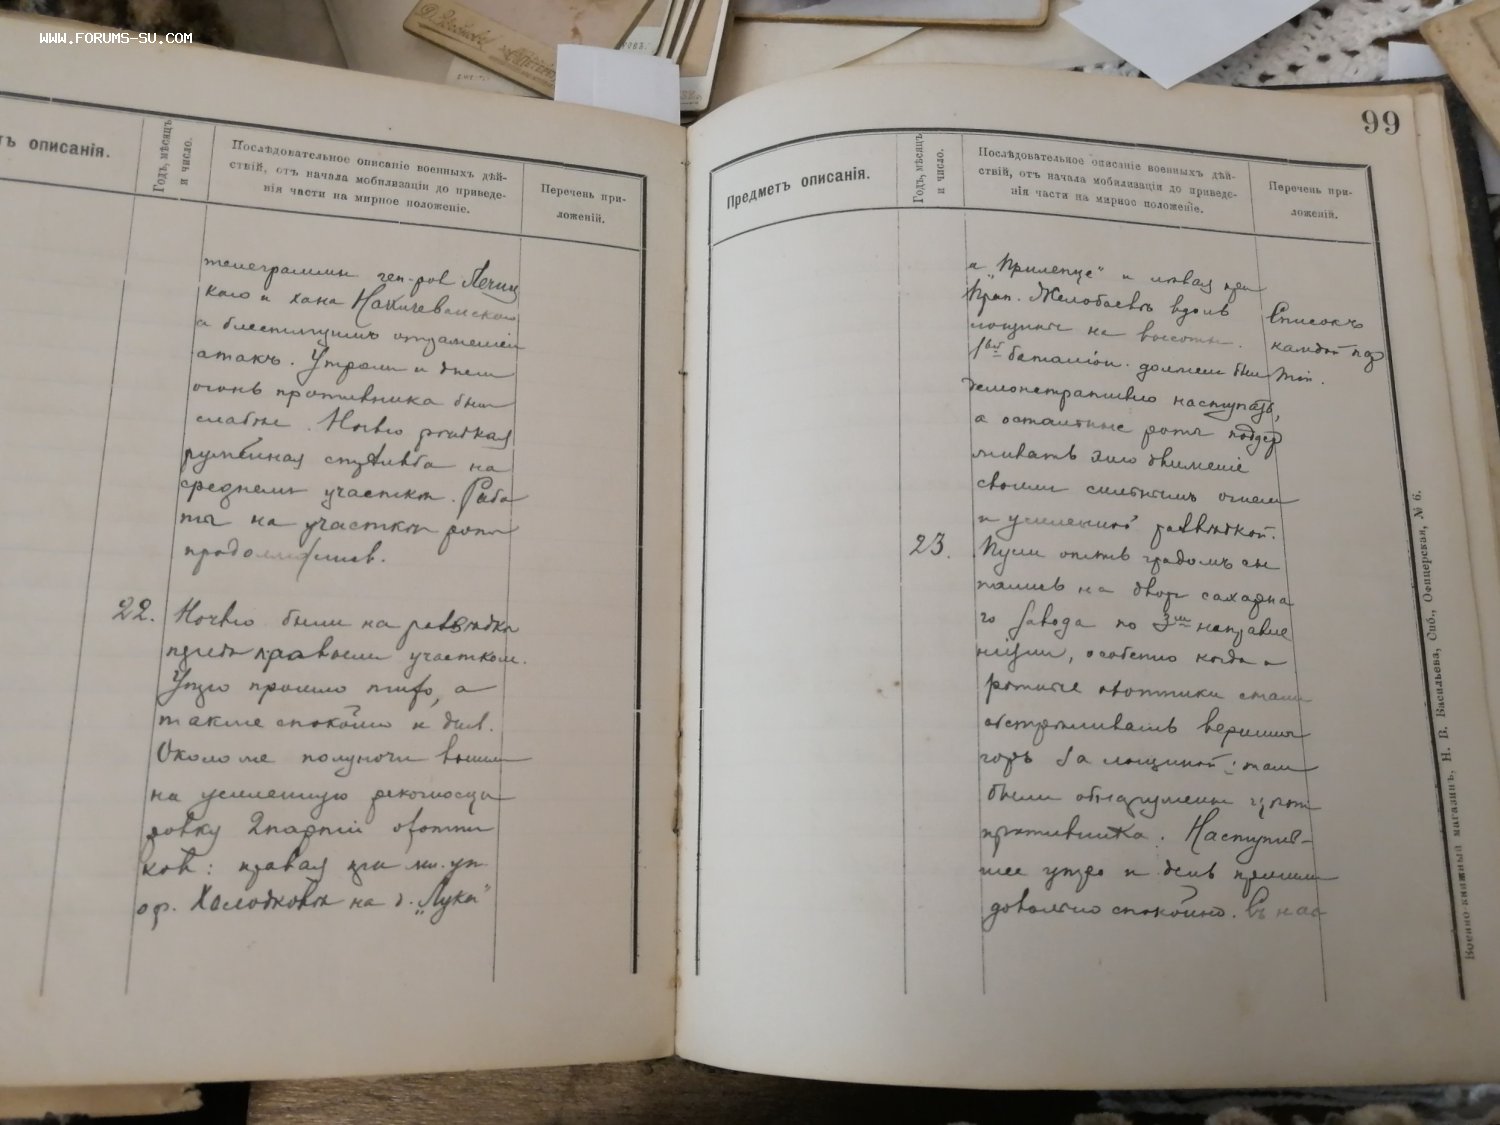 WWW.FORUMS-SU.COM
тъ описанія.
Годъ, мѣсяцъ
и число.
Послѣдовательное описаніе военныхъ дѣй-
ствій, отъ начала мобилизаціи до приведе-
нія части на мирное положеніе.
Перечень при-
ложеній.
телеграммы ген-ров Лечиц
каго и хана Нахичеванскаго
о блестящимъ отраженіи
атакъ. Утромъ и днемъ
огонь противника былъ
слабые. Ночью рѣдкая
ружейная стрѣльба на
среднемъ участкѣ. Рабо
ты на участкѣ роты
продолжались.
22.
Ночью были на развѣдкѣ
предъ правымъ участкомъ.
Утро прошло тихо, а
также спокойно и день.
Около же полуночи вышли
на усиленную рекогносци
ровку 2 партіи охотни
ковъ: правая при мл. ун.
оф. Холодковѣ на д. „Луки"
99
Предметъ описанія.
Годъ, мѣсяцъ
и число.
Послѣдовательное описаніе военныхъ дѣй-
ствій, отъ начала мобилизаціи до приведе-
нія части на мирное положеніе.
Перечень при-
ложеній.
а „Прилепце" и лѣвая при
Прап. Желобаевѣ вдоль
лощины на высоты.
Списокъ
каждой пар
тіи.
1вый баталіон должен был
демонстративно наступать,
а остальные роты поддер
живать это движеніе
своимъ сильнымъ огнемъ
и усиленной развѣдкой.
23.
Пули опять градомъ сы
пались на двор сахарна
го завода по 3мъ направле
ніямъ, особенно когда
ротные охотники стали
обстрѣливать вершины
горъ за лощиной: там
были обнаружены цѣпи
противника. Наступив-
шее утро и день прошли
довольно спокойно. Въ нас-
Военно-книжный магазинъ, Н. В. Васильева, Спб., Офицерская, № 6.